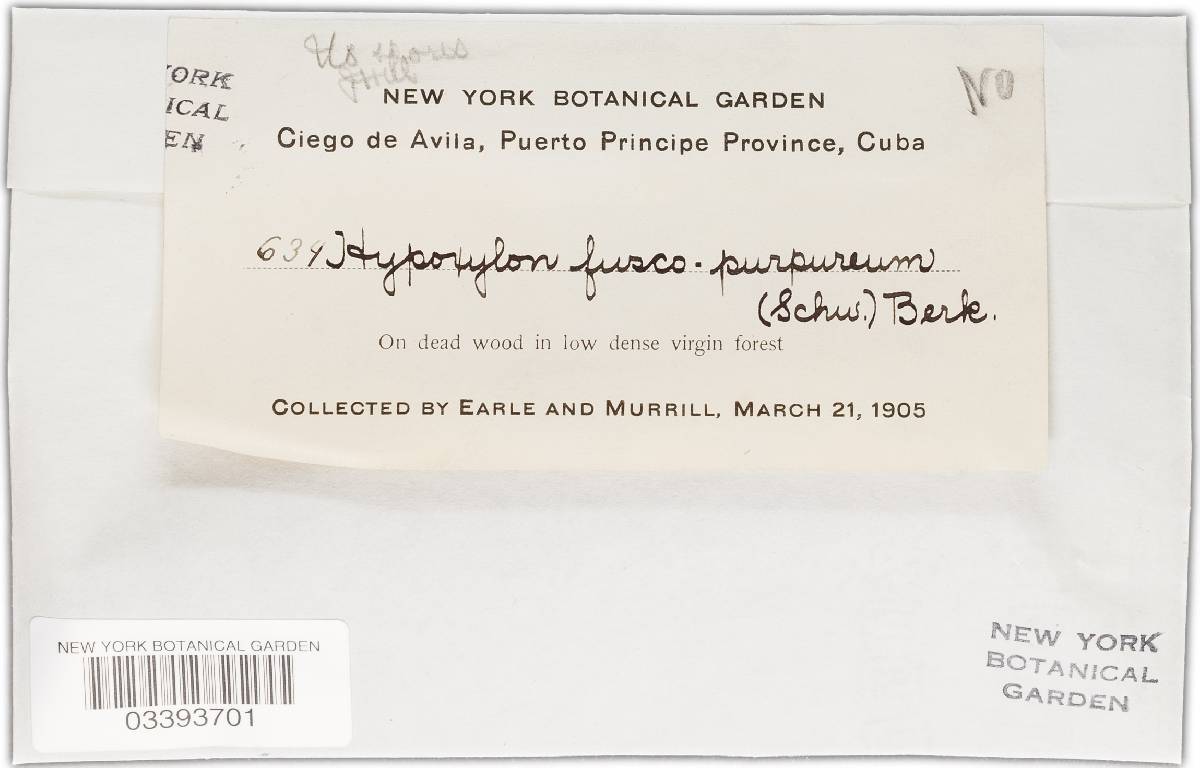 No spores
YORK
ICAL
EN
NEW YORK BOTANICAL GARDEN
No
Ciego de Avila, Puerto Principe Province, Cuba
639 Hypoxylon fusco-purpureum
(Schw.) Berk.
On dead wood in low dense virgin forest
COLLECTED BY EARLE AND MURRILL, MARCH 21, 1905
NEW YORK BOTANICAL GARDEN
03393701
NEW YORK
BOTANICAL
GARDEN